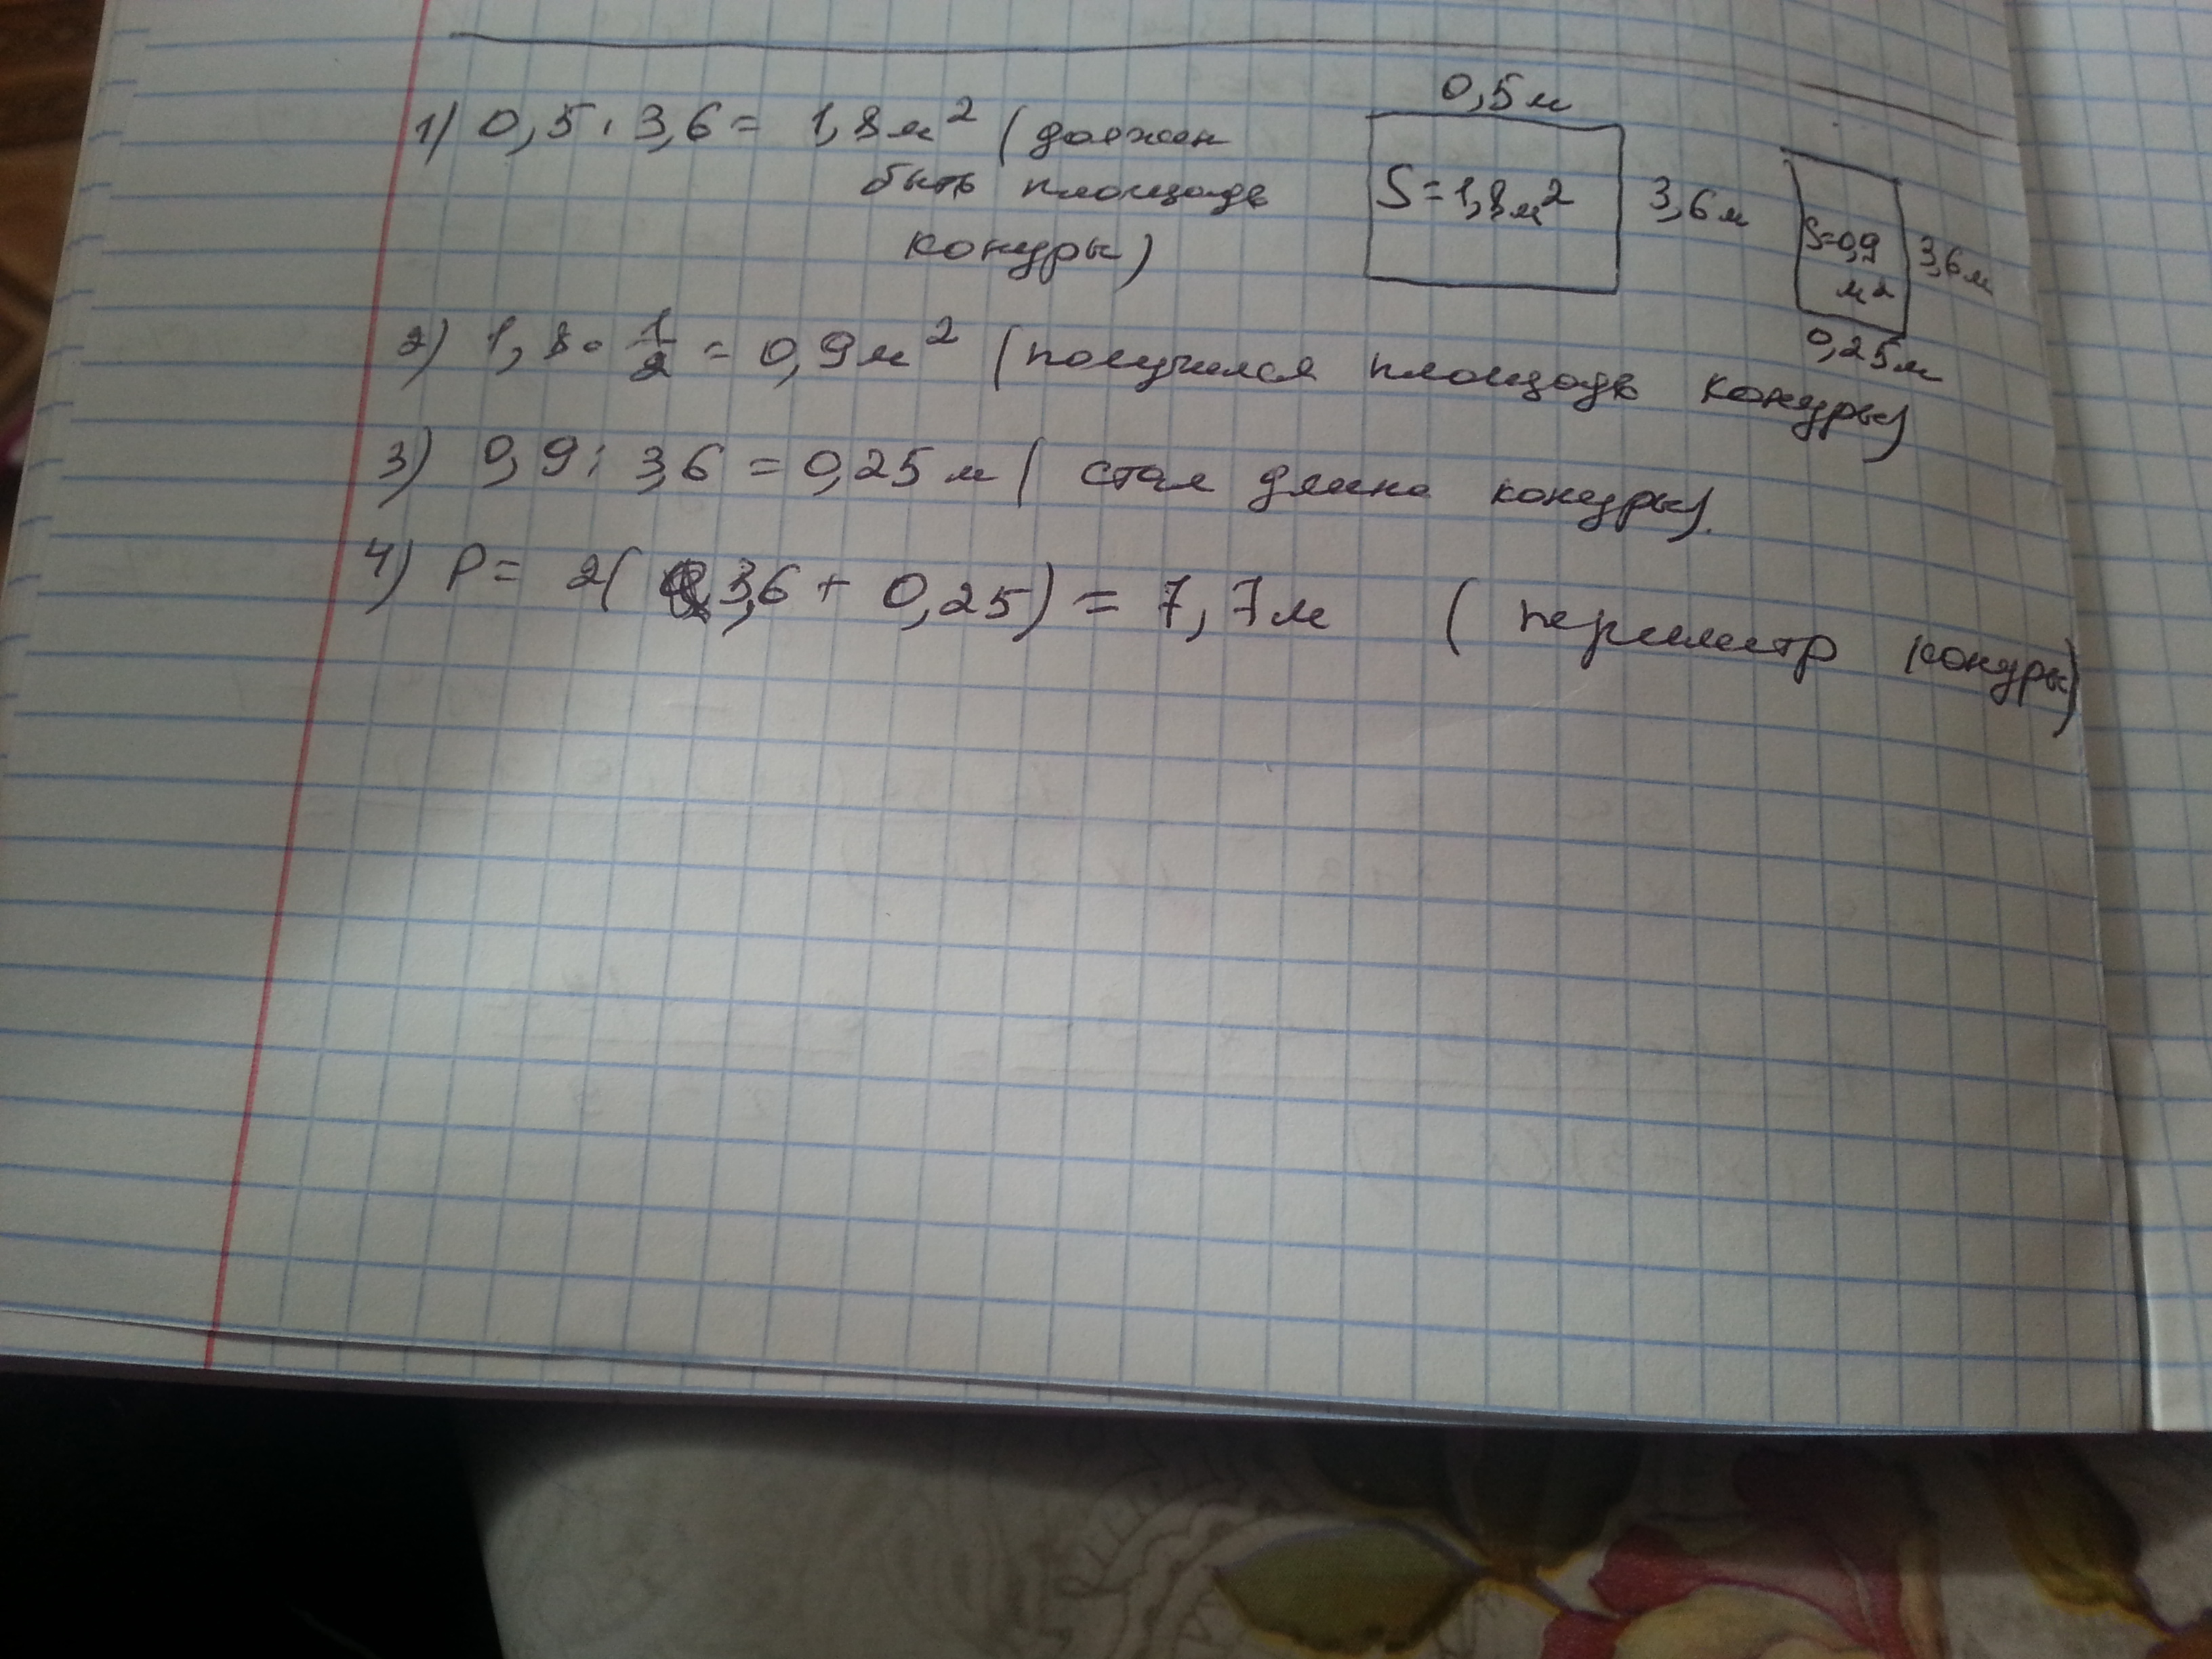 1) 0,5 · 3,6 = 1,8 м² (должен
быть площадь
конуры)
0,5 м
S = 1,8 м²
3,6 м
S=0,9
м²
3,6 м
0,25 м
2) 1,8 · 1/2 = 0,9 м² (получился площадь конуры)
3) 0,9 : 3,6 = 0,25 м ( стал длина конуры).
4) P = 2( 3,6 + 0,25) = 7,7 м ( периметр конуры)